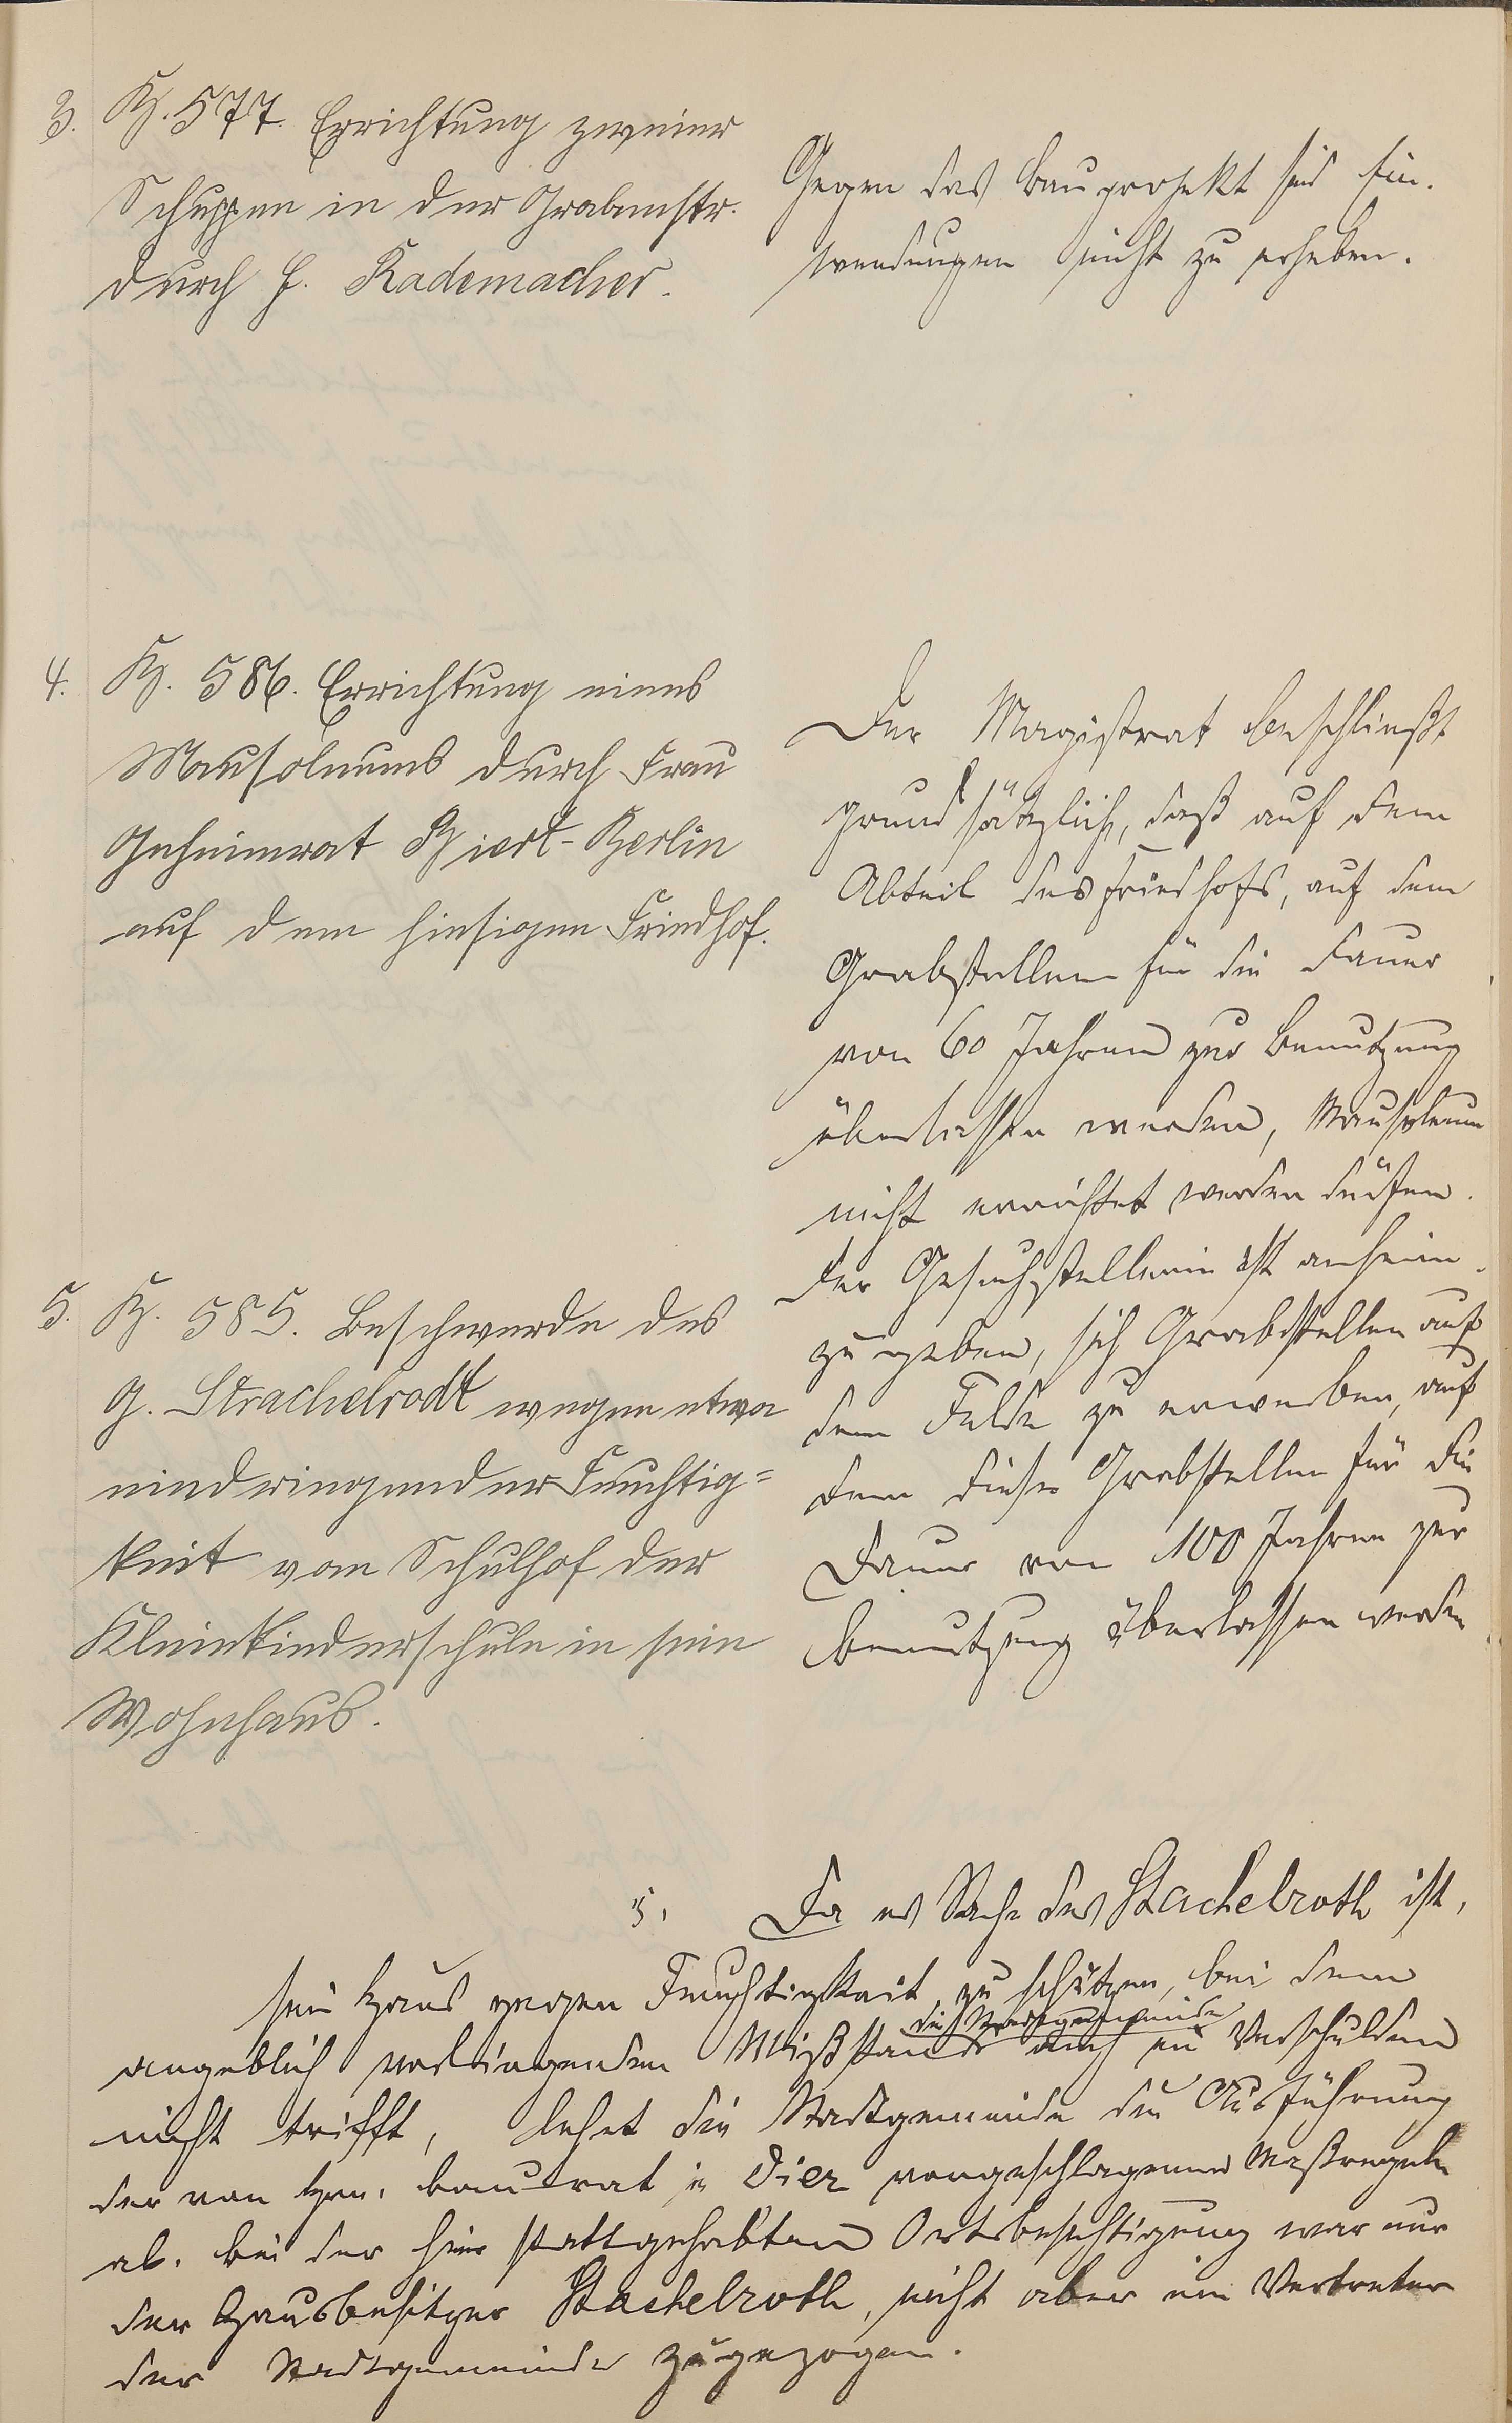 3. K. 577. Errichtung zweier
Schuppen in der Grabenstr.
durch H. Rademacher.
Gegen das Bauprojekt sind Ein-
wendungen nicht zu erheben.
4. K. 586. Errichtung eines
Mausoleums durch Frau
Geheimrat Biert-Berlin
auf dem hiesigen Friedhof.
Der Magistrat beschließt
grundsätzlich, daß auf dem
Abteil des Friedhofs, auf dem
Grabstellen für die Dauer
von 60 Jahren zur Benutzung
überlassen werden, Mausoleum
nicht errichtet werden dürfen.
Der Gesuchstellerin ist anheim-
zu geben, sich Grabstellen auf
dem Felde zu erwerben, auf
dem diese Grabstellen für die
Dauer von 100 Jahren zur
Benutzung überlassen werden
5. K. 585. Beschwerde des
G. Strachelrodt wegen etwa
eindringender Feuchtig=
keit vom Schulhof der
Kleinkinderschule in sein
Wohnhaus.
5. Da es Sache des Stachelroth ist,
sein Haus gegen Feuchtigkeit zu schützen, bei dem
die Stadtgemeinde
angeblich vorliegenden Mißstande auch ein Verschulden
nicht trifft, lehnt die Stadtgemeinde die Ausführung
der von Hrn. Baurat in Diez vorgeschlagenen Maßregeln
ab. Bei der hier stattgehabten Ortsbesichtigung war nur
der Hausbesitzer Stachelroth, nicht aber ein Vertreter
der Stadtgemeinde zugezogen.